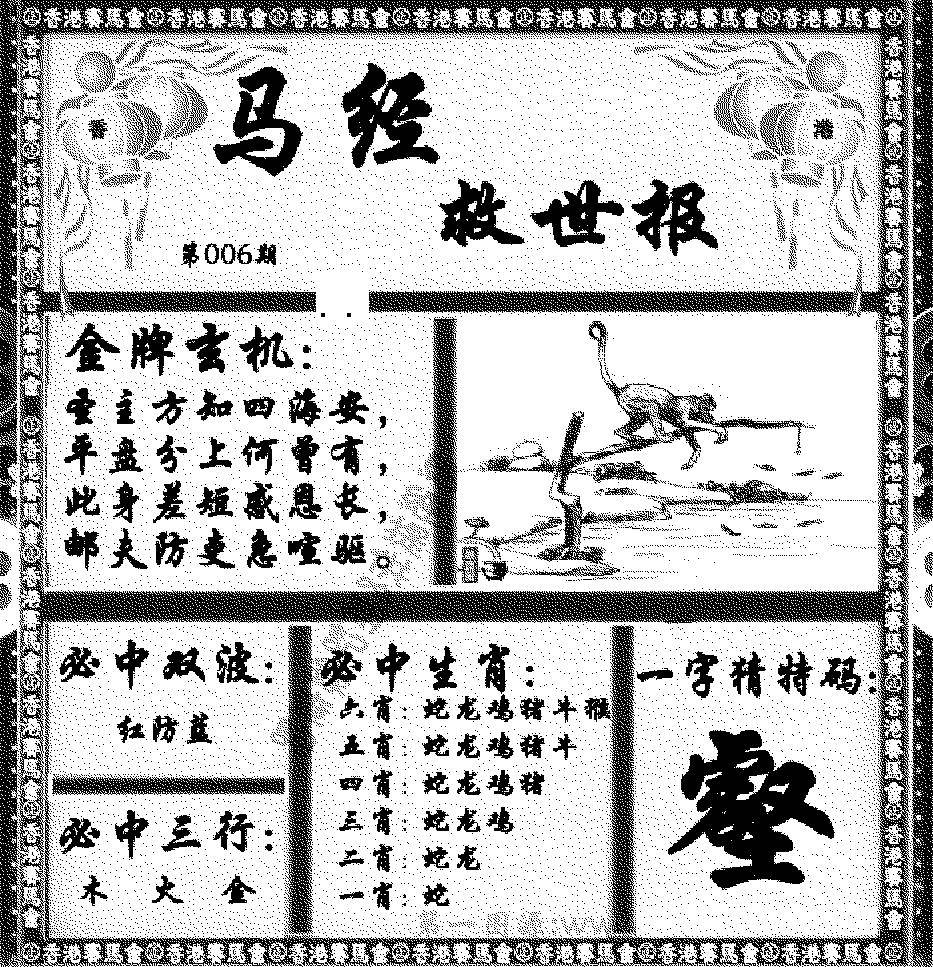 香港賽馬會 香港賽馬會 香港賽馬會 香港賽馬會 香港賽馬會 香港賽馬會 香港賽馬會
香
港
马经
救世报
第006期
金牌玄机:
圣主方知四海安，
平盘分上何曾有，
此身差短感恩长，
邮夫防吏急喧驱。
必中双波:
红防蓝
必中三行:
木 火 金
必中生肖:
六肖: 蛇龙鸡猪牛猴
五肖: 蛇龙鸡猪牛
四肖: 蛇龙鸡猪
三肖: 蛇龙鸡
二肖: 蛇龙
一肖: 蛇
一字猜特码:
壑
香港賽馬會 香港賽馬會 香港賽馬會 香港賽馬會 香港賽馬會 香港賽馬會 香港賽馬會